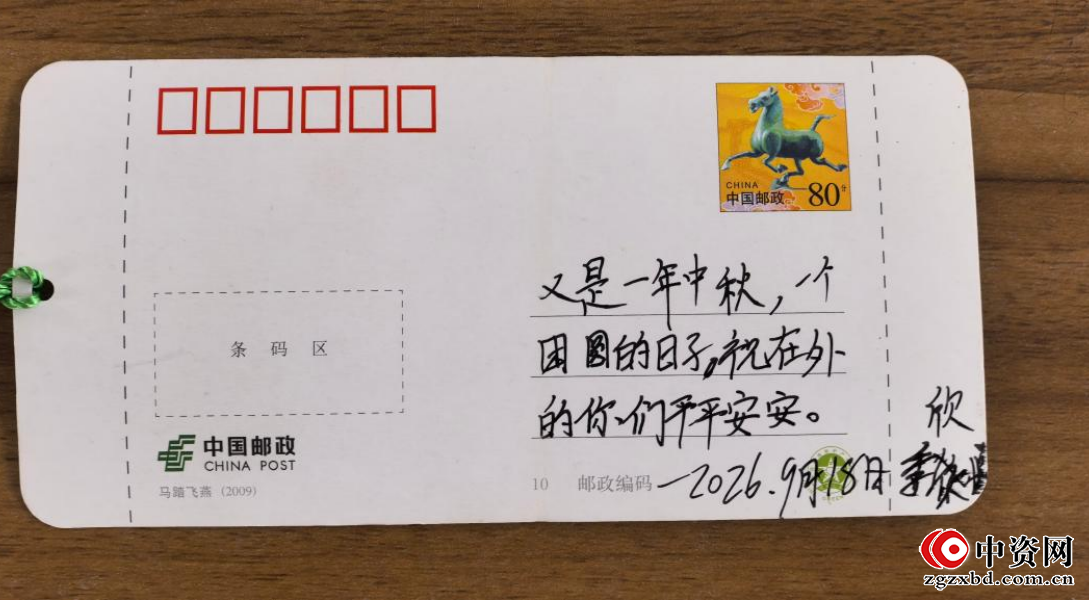 CHINA
中国邮政 80分
又是一年中秋，一个
团圆的日子。祝在外
的你们平平安安。
欣
—2026.9月18日
条码区
中国邮政
CHINA POST
马踏飞燕 (2009)
10 邮政编码
中资网
zgzxbd.com.cn